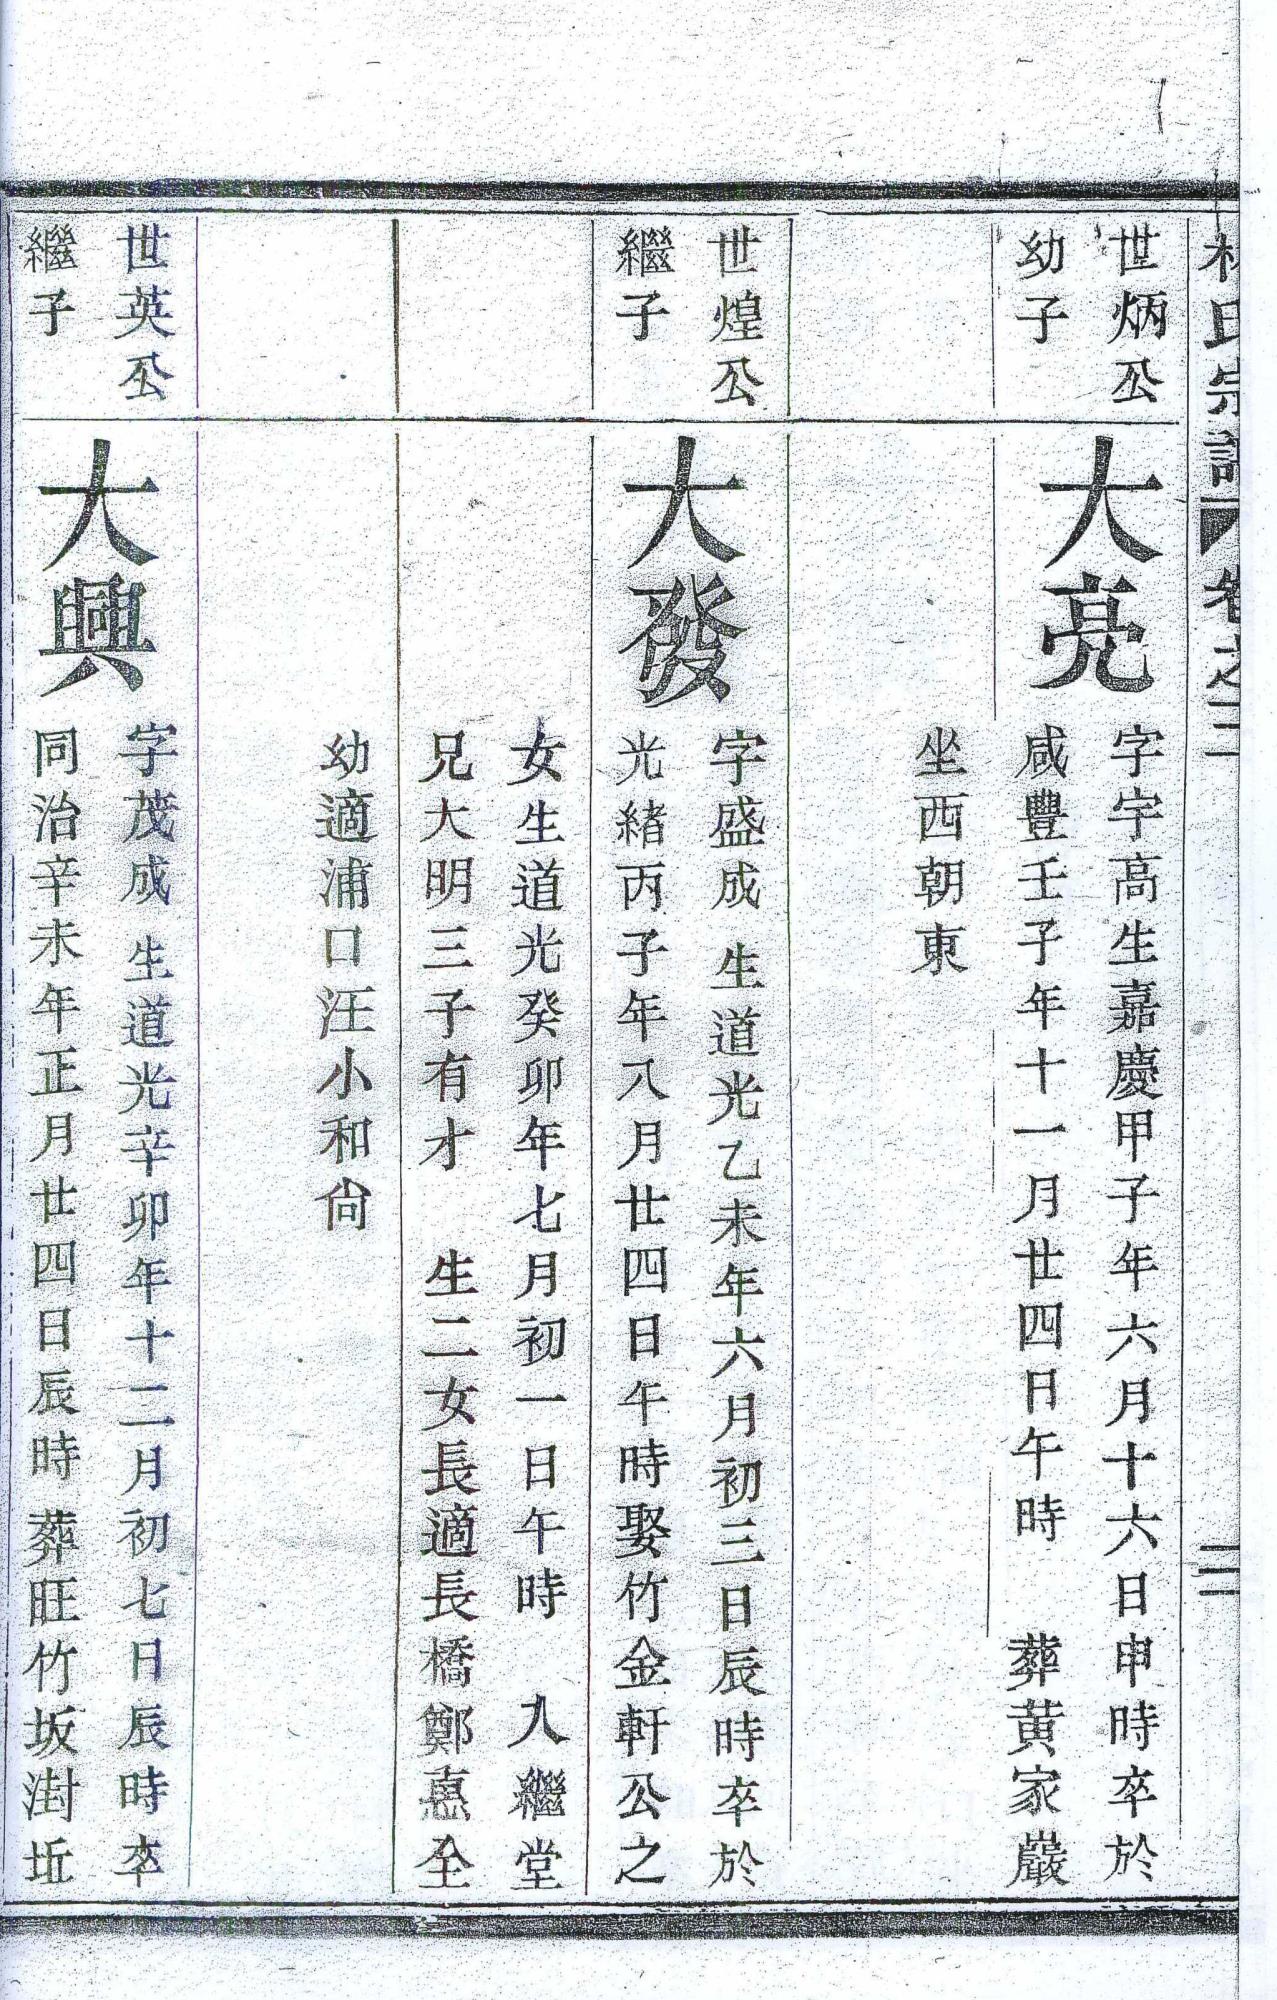 林氏宗譜 卷之二 三
世炳公
幼子
大亮
字字高生嘉慶甲子年六月十六日申時卒於
咸豐壬子年十一月廿四日午時 葬黃家巖
坐西朝東
世煌公
繼子
大發
字盛成 生道光乙未年六月初三日辰時卒於
光緒丙子年八月廿四日午時娶竹金軒公之
女生道光癸卯年七月初一日午時 入繼堂
兄大明三子有才 生二女長適長橋鄭惪全
幼適浦口汪小和尙
世英公
繼子
大興
字茂成 生道光辛卯年十二月初七日辰時卒
同治辛未年正月廿四日辰時 葬旺竹坂澍坵